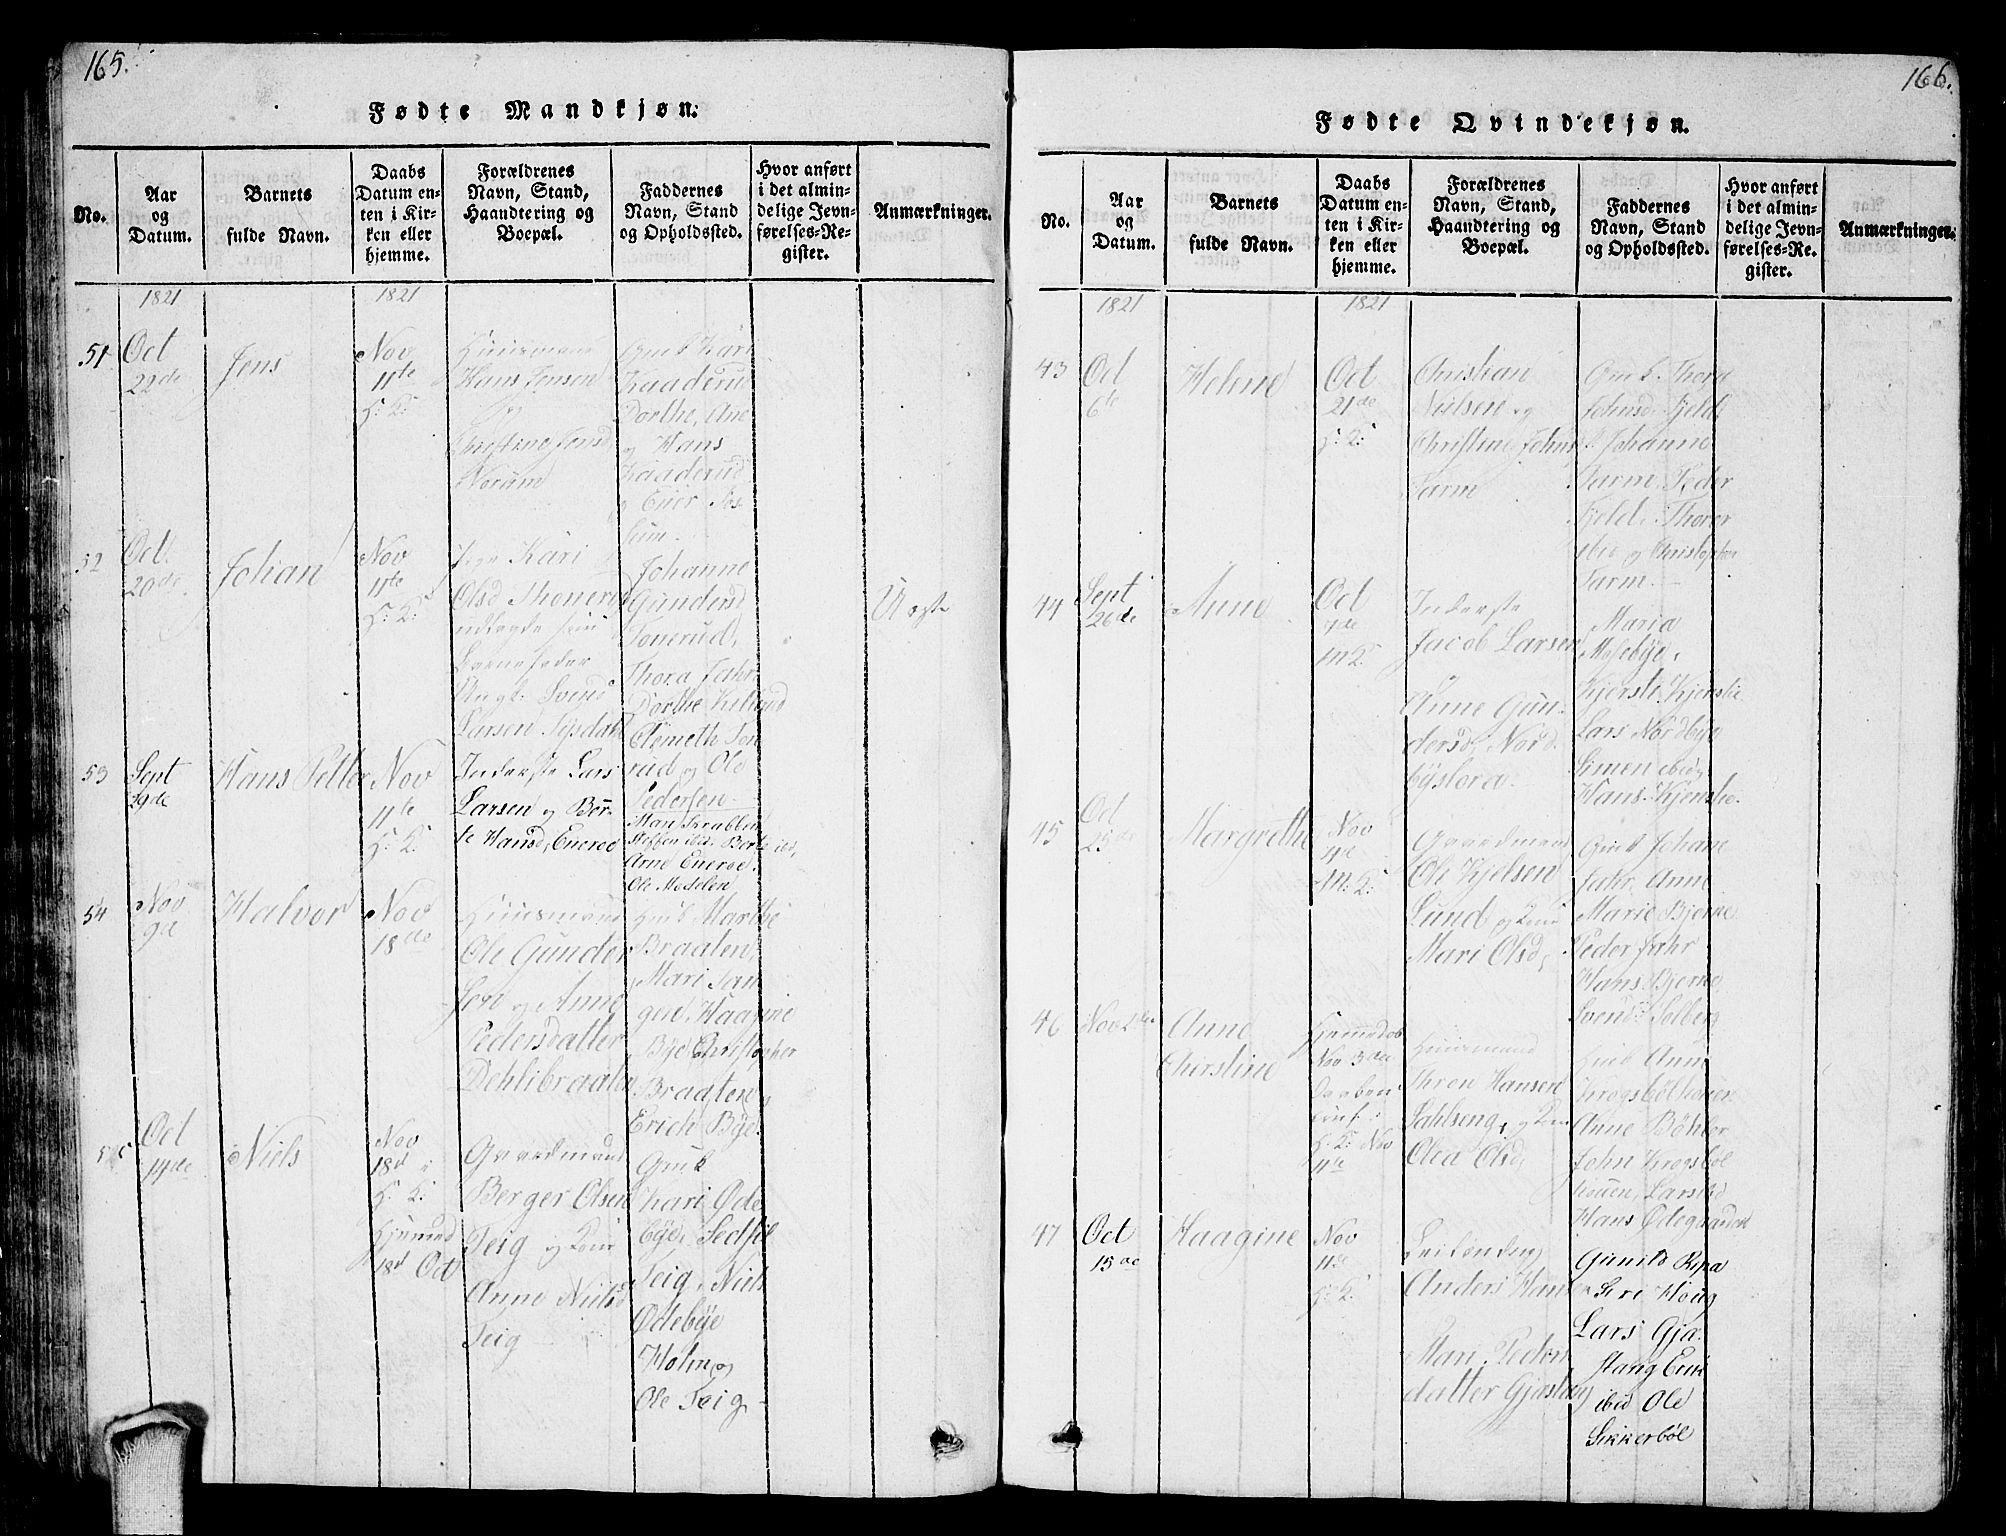 165.
Fødte Mandkjøn.
No.
Aar
og
Datum.
Barnets
fulde Navn.
Daabs
Datum en-
ten i Kir-
ken eller
hjemme.
Forældrenes
Navn, Stand,
Haandtering og
Boepæl.
Faddernes
Navn, Stand
og Opholdssted.
Hvor anført
i det almin-
delige Jevn-
førelses-Re-
gister.
Anmærkninger.
1821
1821
51
Oct
22de
Jens
Nov
11te
H: K:
Huusmand
Hans Jensen
og
Christine Jensd
Norum
Gmk Kari
Kaaderud
Dorthe, Ane
og Hans
Kaaderud
52
Oct.
20de
Johan
Nov
11te
H: K:
Kari
Olsd Thonerud
udlagde
Barnefader
Ungk: Svend
Larsen
Johanne
Gundersd
Tonerud,
Thora Jahr
Dorthe
og Ole
Pedersen
Uægte
53
Sept
29de
Hans Petter
Nov
11te
H: K:
Inderste Lars
Larsen og Bør-
te Hansd, Eneroe
Mari Skrabben
Steffen ibid. Børte ibd,
Arne Eneroe.
Ole Moeslen
54
Nov
9de
Halvor
Nov
18de
Huusmand
Ole Gunder
sen og Anne
Pedersdatter
Dehlibraaten
Hmk Marthe
Braaten,
Mari Tan
gen, Haagine
Bye Christopher
Braaten,
Erich Bye.
55
Oct
14de
Niels
Nov
18d i
H: K:
Hjemmed
18d Oct
Gaardmand
Berger Olsen
Teig og Kone
Anne Nielsd
Teig
Gmk
Kari Øde
bye,
Teig, Niels
Ødebye
Holm og
Ole Teig
166.
Fødte Qvindekjøn.
No.
Aar
og
Datum.
Barnets
fulde Navn.
Daabs
Datum en-
ten i Kir-
ken eller
hjemme.
Forældrenes
Navn, Stand,
Haandtering og
Boepæl.
Faddernes
Navn, Stand
og Opholdssted.
Hvor anført
i det almin-
delige Jevn-
førelses-Re-
gister.
Anmærkninger.
1821
1821
43
Oct
6te
Helene
Oct
21de
H: K:
Christian
Nielsen og
Christine Johns
Farm
Gmk. Thora
Johnsd, Fjeld
Johanne
Farm, Peder
Fjeld, Thorer
ibid og Christopher
Farm.
44
Sept
26de
Anne
Oct
7de
M K:
Inderste
Jacob Larsen
Anne Gun-
dersd, Nord
byslora.
Maria
Mosebye,
Kjersti Kjenslie
Lars Nordbye
Simen ibid og
Hans Kjenslie.
45
Oct
25de
Margrethe
Nov
4de
M: K:
Gaardmand
Ole Kjelsen
Lund og Kone
Mari Olsd,
Gmk Johane
Jahr, Anne
Marie Bjerne
Peder Jahr
Hans Bjerne
Svend Solberg
46
Nov 2den
Anne
Cherstine
Hjemmedøb
Nov 3die
Daaben
conf:
H: K: Nov
11te
Huusmand
Thron Hansen
Sahlseng, og Kone
Olea Olsd,
Hmk Anne
Krogsbøl
Anne Bøhler
John Krogsbøl
Hans Ødegaarden
47
Oct
15de
Haagine
Nov
11te
H: K:
Leilending
Anders Han
Mari Peders
datter Gjæstang
Gunild Ryea
Siri Houg
Lars Gjæ
stang Erik
ibid Ole
Sikkerbøl